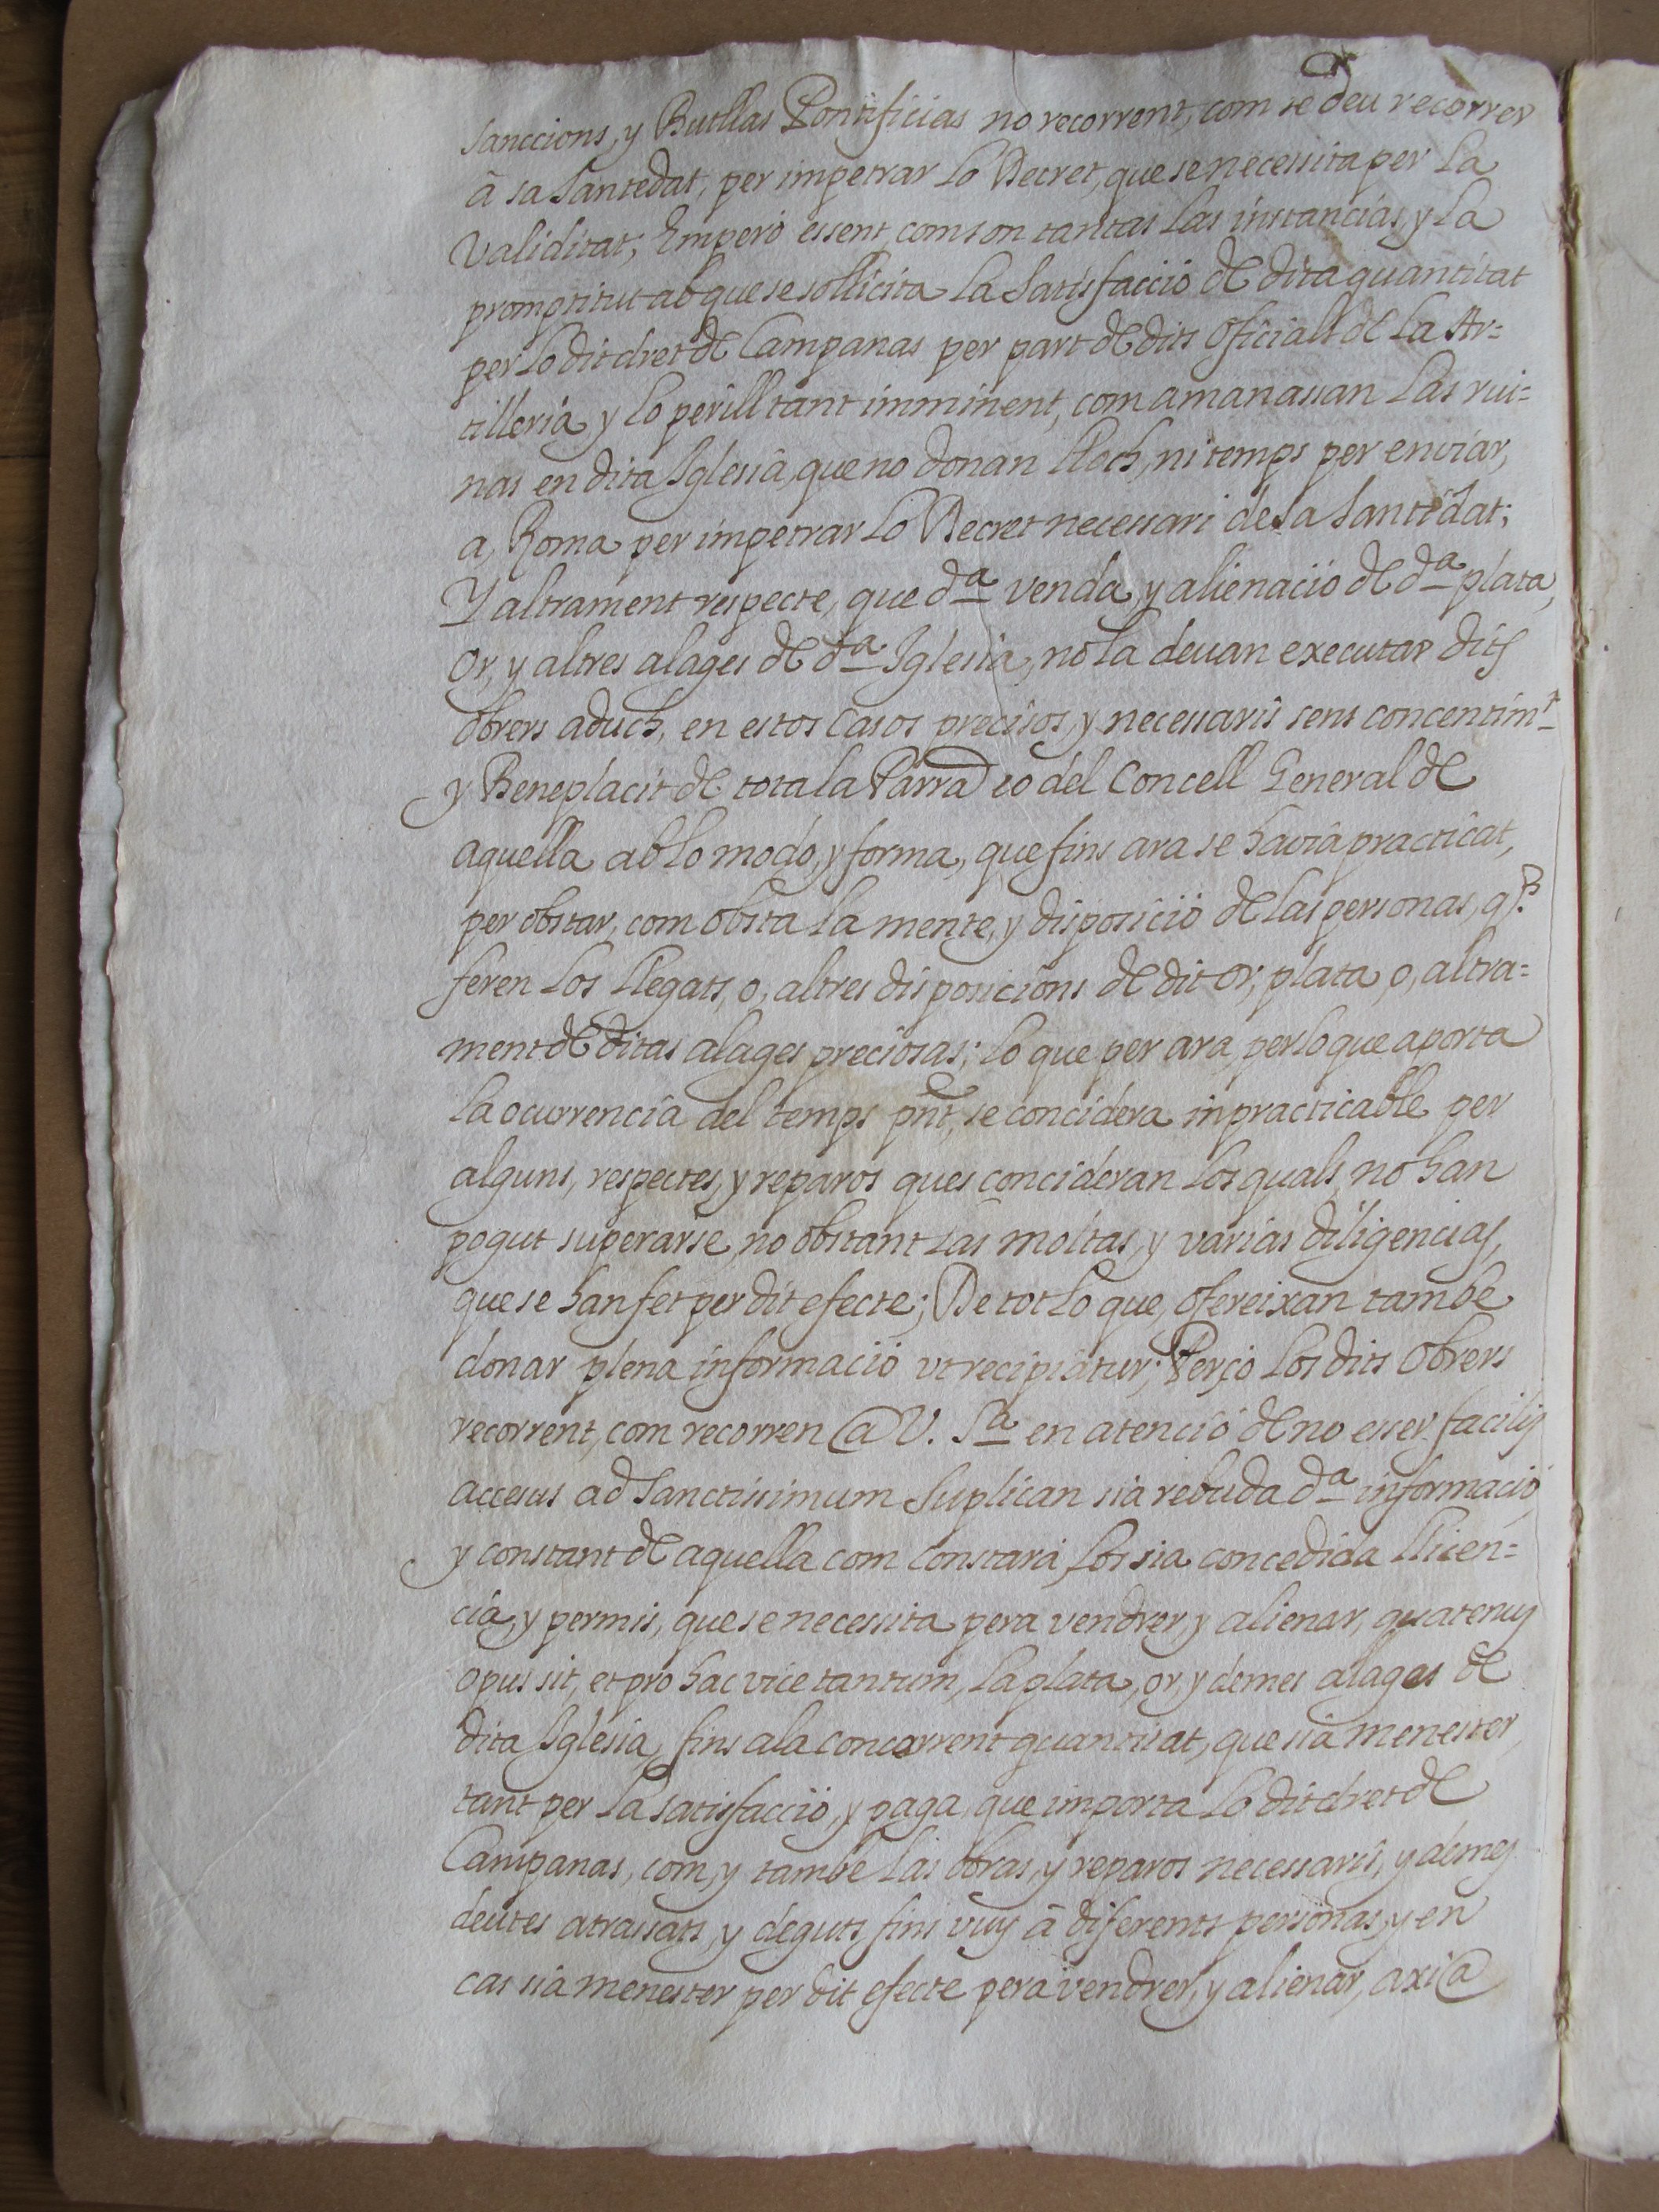 sanccions, y Butllas Pontificias no recorrent, com se deu recorrer
â sa Santedat, per impetrar lo Decret, que se necessita per la
Validitat; Emperò essent, com son tantas las instancias, y la
promptitut ab que se sollicita la Satisfacciò de dita quantitat
per lo dit dret de Campanas per part de dits Oficials de la Ar=
tilleria, y lo perill tant imminent, com amanassan las rui=
nas en dita Iglesia, que no donan lloch, ni temps per enviar,
a, Roma per impetrar lo Decret necessari de sa Santedat;
Y altrament respecte, que dª venda, y alienaciò de dª plata,
Or, y altres alages de dª Iglesia, no la devan executar dits
obrers aduch, en estos casos precisos, y necessaris sens concentimt
y Beneplacit de tota la Parra eo del Concell General de
aquella ab lo modo, y forma, que fins ara se havia practicat,
per obstar, com obsta la mente, y disposiciò de las personas, q.
feren los llegats, o, altres disposicions de dit Or, plata, o, altra=
ment de ditas alages preciosas; lo que per ara, per lo que aporta
la ocurrencia del temps pnt, se concidera inpracticable per
alguns, respectes, y reparos ques concideran los quals, no han
pogut superarse, no obstant las moltas, y varias diligencias,
que se han fet per dit efecte; De tot lo que, ofereixan tambe
donar plena informaciò vt recipiatur; Perço los dits Obrers
recorrent, com recorren @ V. Sª en atenciò de no esser facilis
accesus ad Sanctissimum Suplican sia rebuda dª informaciò
y constant de aquella com constarà, los sia concedida llicen=
cia, y permis, que se necessita pera vendrer, y alienar, quatenus
opus sit, et pro hac vice tantum, la plata, or, y demes alages de
dita Iglesia, fins a la concorrent quantitat, que sia menester,
tant per la satisfacciò, y paga, que importa lo dit dret de
Campanas, com, y tambe las obras, y reparos necessaris, y demes
deutes atrassats, y deguts fins vuy â diferents personas, y en
cas sia menester per dit efecte pera vendrer, y alienar, axi @